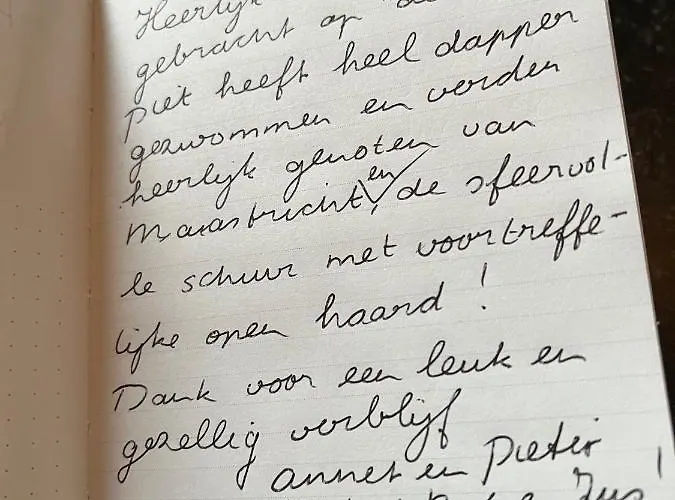 Heerlijk
gebracht op de
Piet heeft heel dapper
gezwommen en verder
heerlijk genoten van
Maastricht, en de sfeervol-
le schuur met voortreffe-
lijke open haard!
Dank voor een leuk en
gezellig verblijf
Annet en Pieter